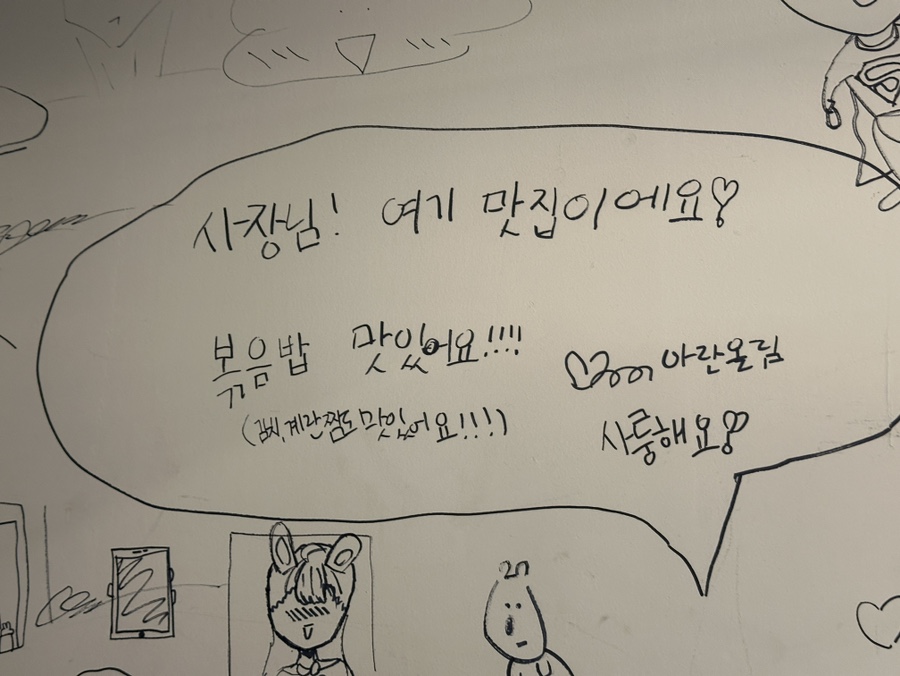 사장님! 여기 맛집이에요♡
볶음밥 맛있어요!!!!
(김치,계란찜도 맛있어요!!!)
아란올림
사룽해요♡